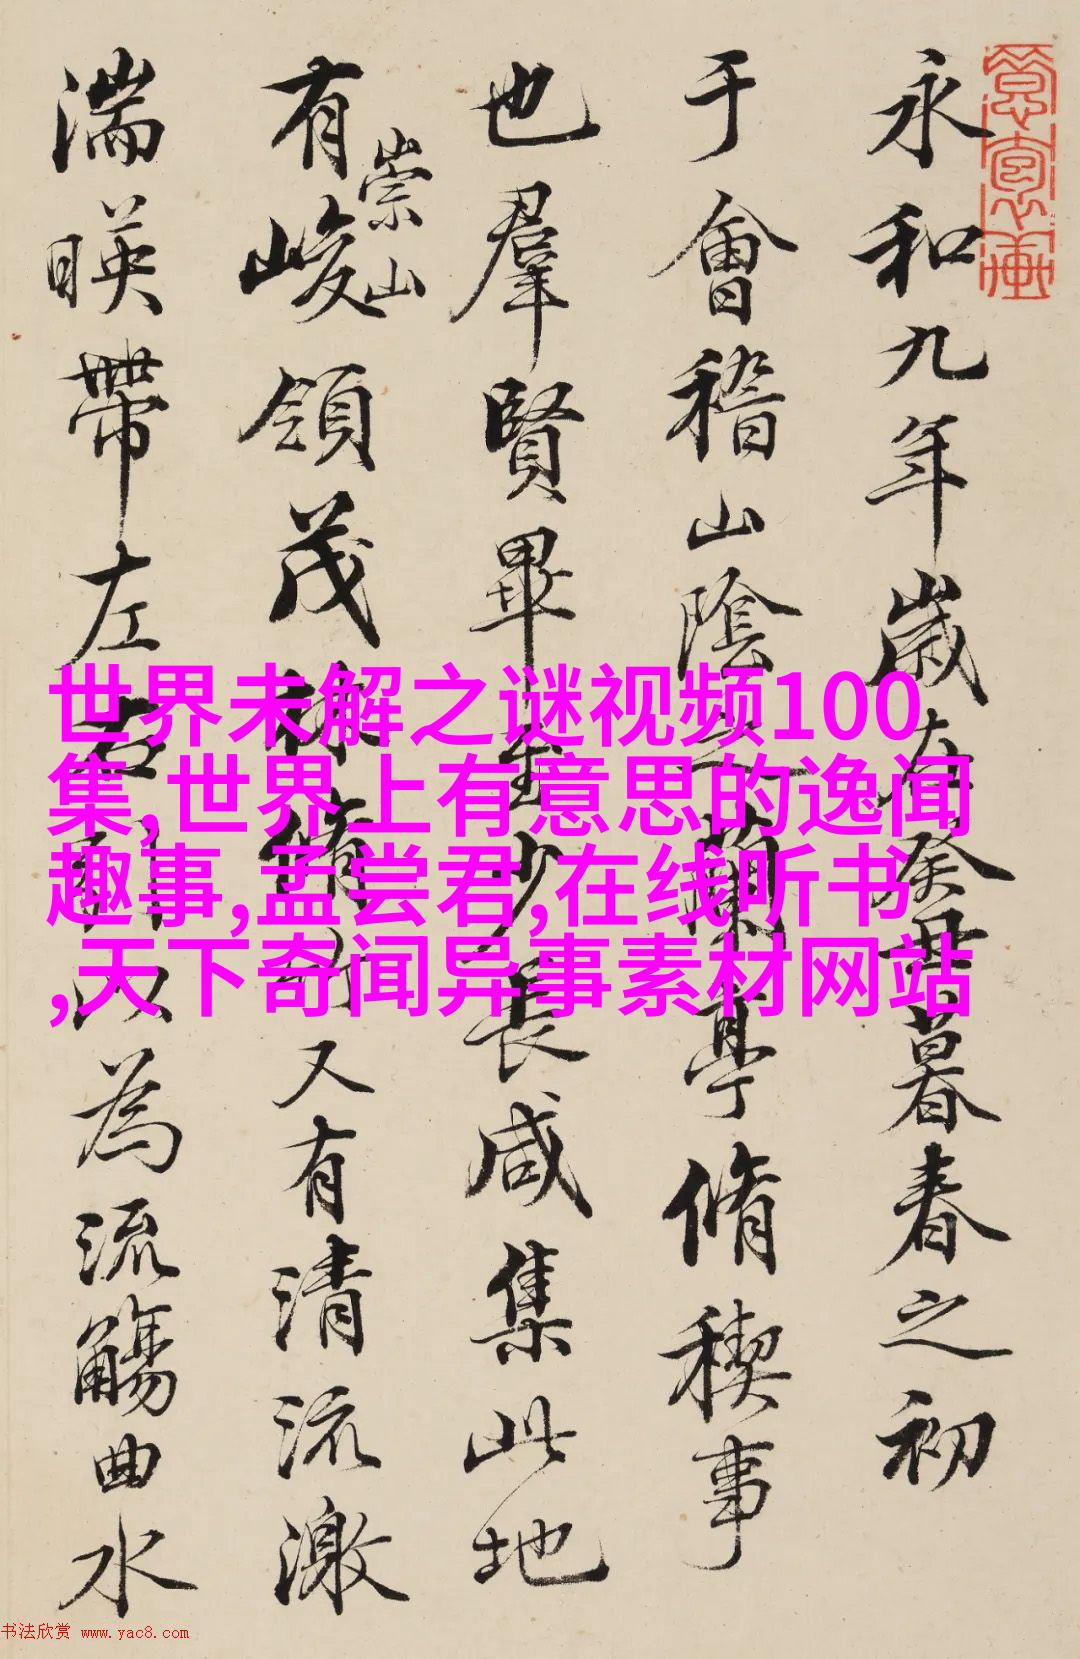 永和九年歲在癸丑暮春之初
于會稽山陰之蘭亭脩稧事
也羣賢畢至少長咸集此地
有崇山峻領茂林脩竹又有清流激
湍暎帶左右引以為流觴曲水
世界未解之谜视频100
集,世界上有意思的逸闻
趣事,孟尝君,在线听书
,天下奇闻异事素材网站
书法欣赏 www.yac8.com